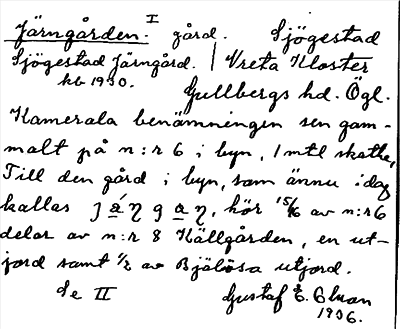 I
Järngården. gård. Sjögestad
Sjögestad Järngård. | Vreta Kloster
kb 1930. Gullbergs hd. Ögl.
Kamerala benämningen sen gam-
malt på n:r 6 i byn, 1 mtl skatte,
Till den gård i byn, som ännu idag
kallas jäŋgaŋ, hör 15/16 av n:r 6
delar av n:r 8 Källgården, en ut-
jord samt 1/2 av Bjälösa utjord.
Se II Gustaf E. Elwan
1936.